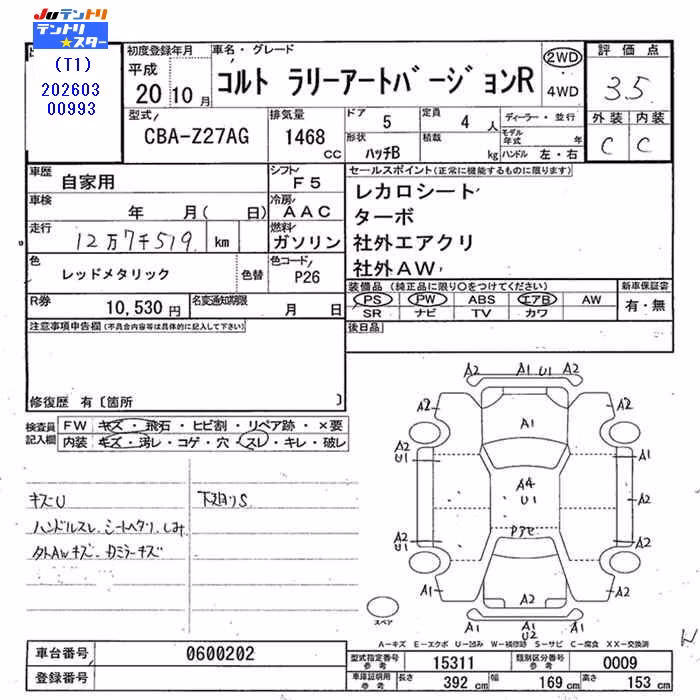 JUテントリ
テントリ
★スター
(T1)
202603
00993
初度登録年月
平成
20 10月
車名・グレード
コルト ラリーアートバージョンR
2WD
4WD
評価点
3.5
外装 内装
C C
型式
CBA-Z27AG
排気量
1468
CC
ドア
5
定員
4 人
形状
ハッチB
積載
kg
ディーラー・並行
モデル年式 年
ハンドル 左・右
車歴
自家用
シフト
F5
車検
年 月( 日)
冷房
AAC
走行
12万7千519 km
燃料
ガソリン
色
レッドメタリック
色替
色コード
P26
R券
10,530 円
名変通知期限
月 日
セールスポイント(正常に機能するものに限ります)
レカロシート
ターボ
社外エアクリ
社外AW
装備品(純正品に限り○をつけてください)
PS PW ABS エアB AW
SR ナビ TV カワ
新車保証書
有・無
後日品
注意事項申告欄(不具合内容等は具体的に記入して下さい)
修復歴 有〔箇所 〕
検査員記入欄
FW キズ・飛石・ヒビ割・リペア跡・×要
内装 キズ・汚レ・コゲ・穴・スレ・キレ・破レ
キズU
ハンドルスレ シートヘタリ しみ
外AWキズ
下廻りS
A2 A1 U1 A2
A2 A1 A2
A2 U1 A1
A4 U1
A2 U1 A2
Pアセ
A1 A2 A1
A1 U2 A1
スペア
A-キズ E-エクボ U-凹み W-補修跡 S-サビ C-腐食 XX-交換済
W
車台番号
0600202
登録番号
型式指定番号
参考
15311
類別区分番号
参考
0009
車庫証明用
参考
長さ
392 cm
幅
169 cm
高さ
153 cm